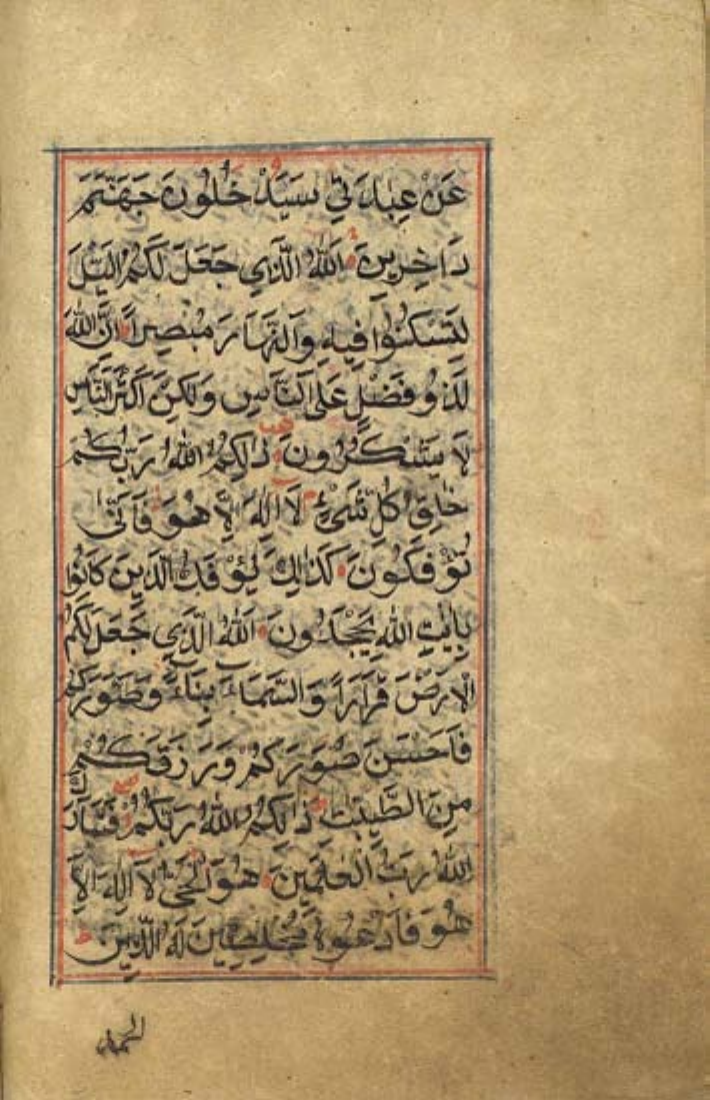 عَنْ عِبَادَتِي سَيَدْخُلُونَ جَهَنَّمَ
دَاخِرِينَ اَللّٰهُ الَّذِي جَعَلَ لَكُمُ الَّيْلَ
لِتَسْكُنُوا فِيهِ وَالنَّهَارَ مُبْصِرًا اِنَّ اللّٰهَ
لَذُو فَضْلٍ عَلَى النَّاسِ وَلٰكِنَّ اَكْثَرَ النَّاسِ
لَا يَشْكُرُونَ ذٰلِكُمُ اللّٰهُ رَبُّكُمْ
خَالِقُ كُلِّ شَيْءٍ لَا اِلٰهَ اِلَّا هُوَ فَاَنّٰى
تُؤْفَكُونَ كَذٰلِكَ يُؤْفَكُ الَّذِينَ كَانُوا
بِاٰيٰتِ اللّٰهِ يَجْحَدُونَ اَللّٰهُ الَّذِي جَعَلَ لَكُمُ
الْاَرْضَ قَرَارًا وَالسَّمَاءَ بِنَاءً وَصَوَّرَكُمْ
فَاَحْسَنَ صُوَرَكُمْ وَرَزَقَكُمْ
مِنَ الطَّيِّبٰتِ ذٰلِكُمُ اللّٰهُ رَبُّكُمْ فَتَبَارَكَ
اللّٰهُ رَبُّ الْعٰلَمِينَ هُوَ الْحَيُّ لَا اِلٰهَ اِلَّا
هُوَ فَادْعُوهُ مُخْلِصِينَ لَهُ الدِّينَ
الحمد